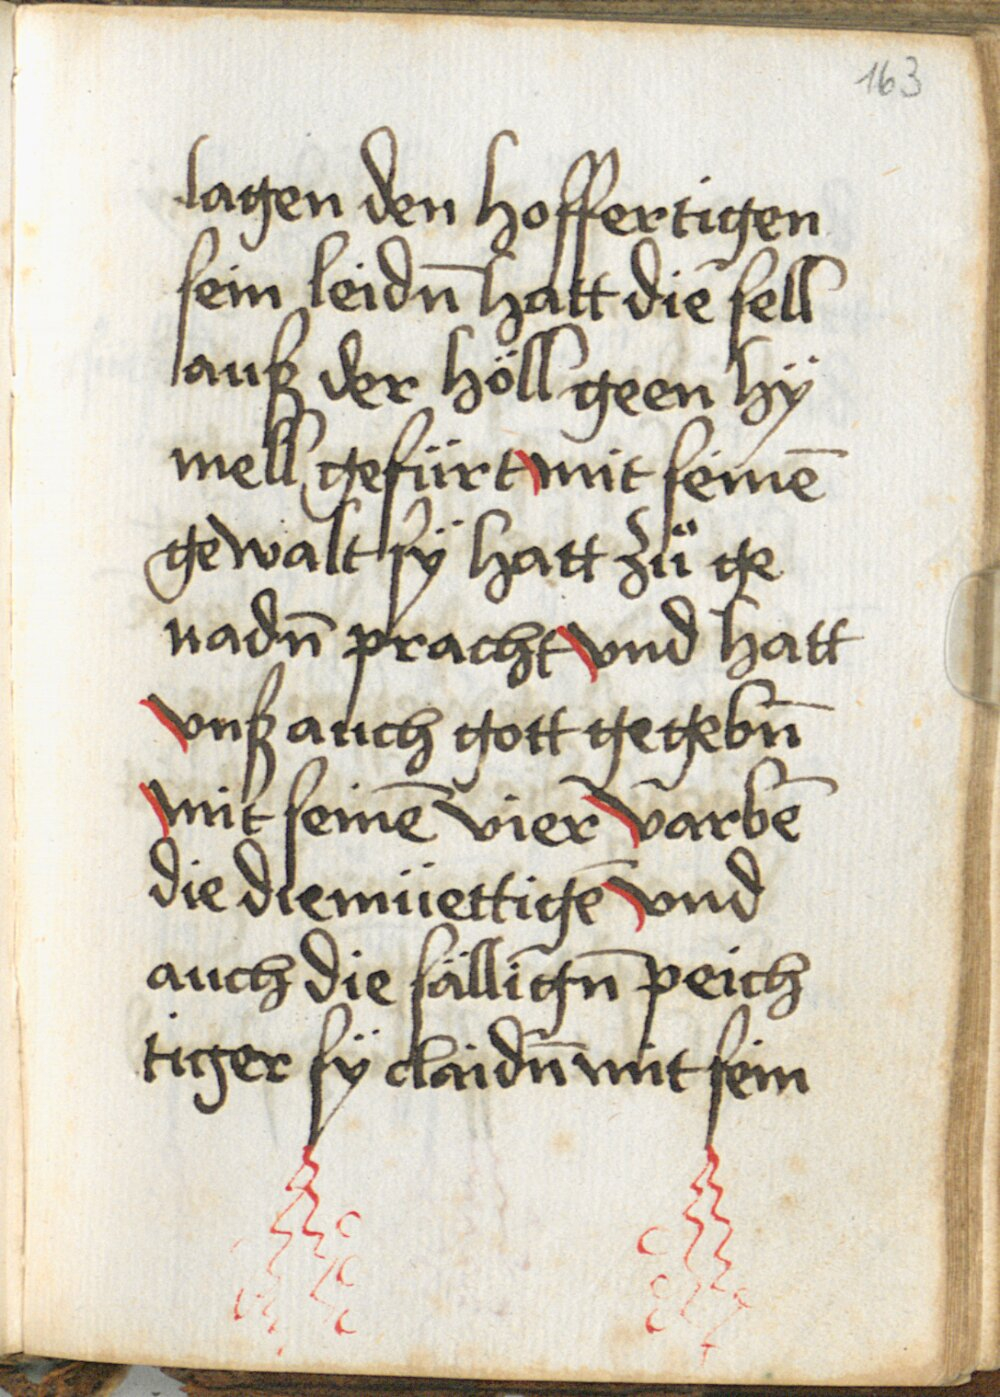 163
lagen den hoffertigen
sein leidn̄ hatt diē sell
auß der höll geen hÿ
mell gefürt mit seinē
gewalt sÿ hatt zů ge
nadn̄ pracht vnd hatt
vnß auch gott gegebn̄
mit seinē vier varbē
die diemüettigē vnd
auch die sällign̄ peich
tiger sÿ claidn̄ mit sein